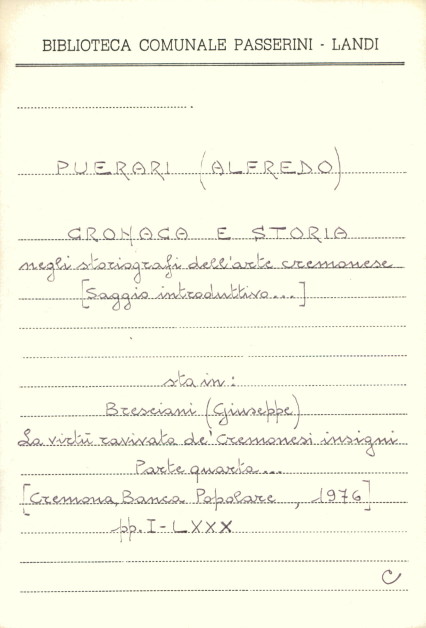 BIBLIOTECA COMUNALE PASSERINI - LANDI
PUERARI (ALFREDO)
CRONACA E STORIA
negli storiografi dell'arte cremonese
[Saggio introduttivo...]
sta in:
Bresciani (Giuseppe)
La virtù ravivata de' Cremonesi insigni
Parte quarta...
[Cremona, Banca Popolare, 1976]
pp. I-LXXX
C